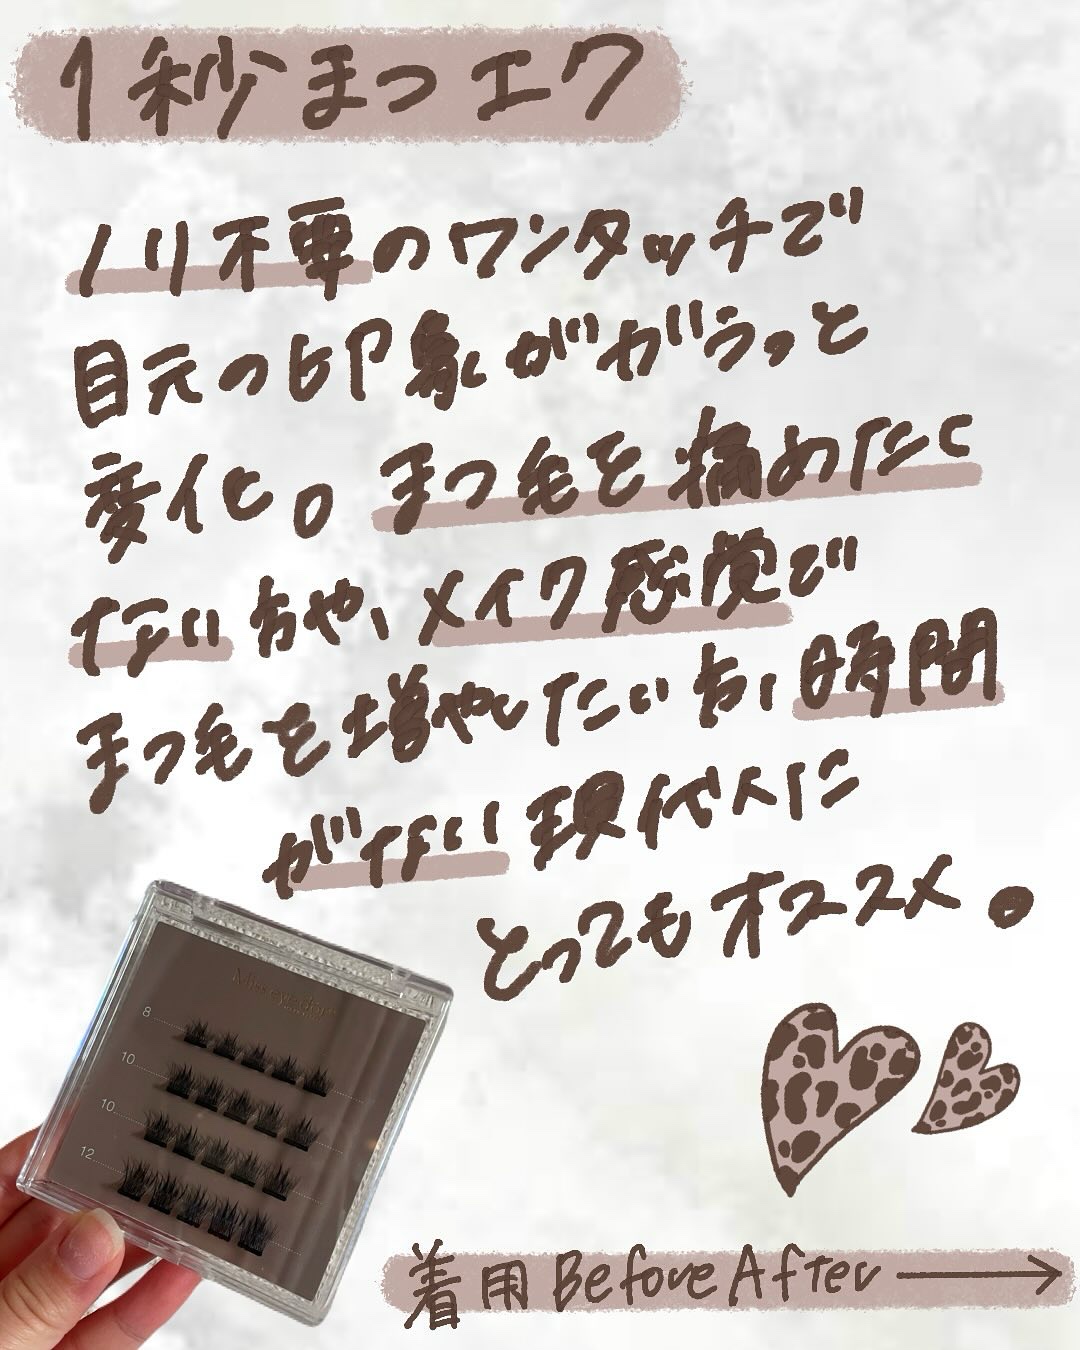 1秒まつエク
ノリ不要のワンタッチで
目元の印象ががらっと
変化。まつ毛を痛めたく
ない方や、メイク感覚で
まつ毛を増やしたい方、時間
がない現代人に
とってもオススメ。
8
10
10
12
着用BeforeAfter